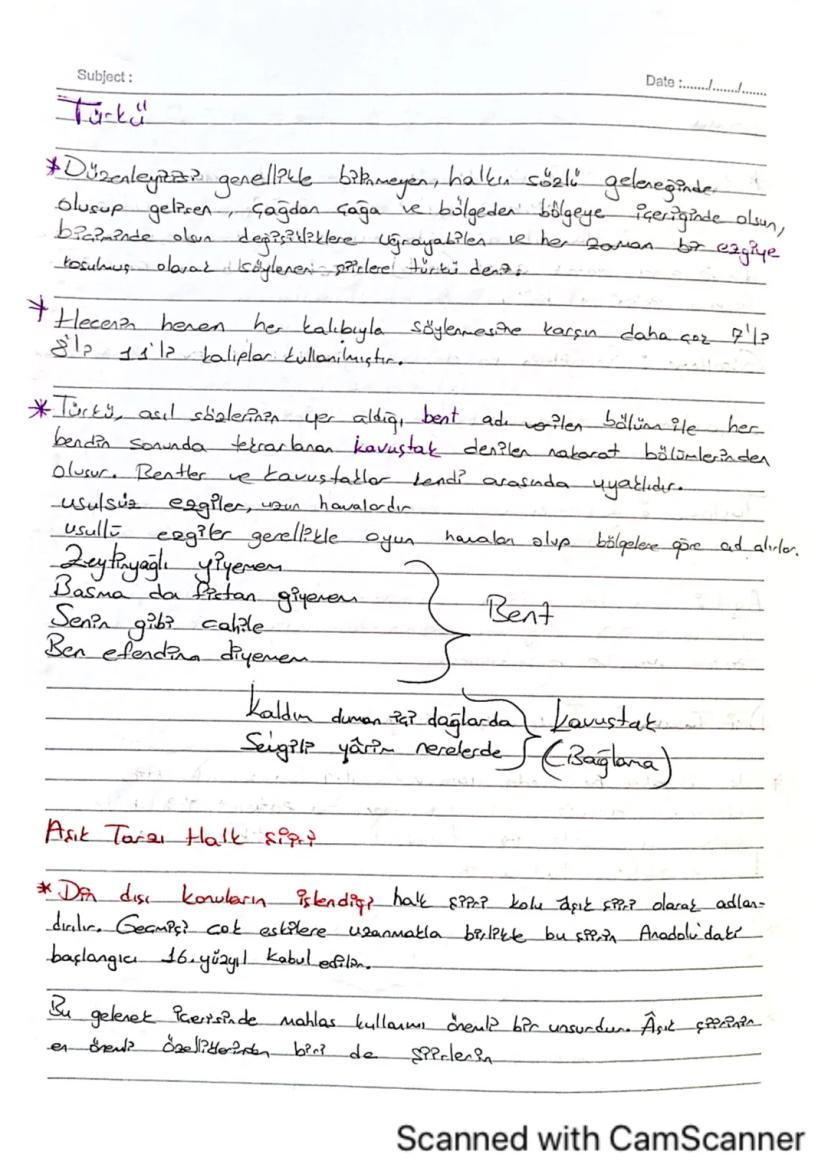 Subject :
Date :......./......./.......
Türkü
* Düzenleyicisi genellikle bilinmeyen, halkın sözlü geleneğinde
oluşup gelişen, çağdan çağa ve bölgeden bölgeye içeriğinde olsun,
biçiminde olsun değişikliklere uğrayabilen ve her zaman bir ezgiye
koşulmuş olarak söylenen şiirlere türkü denir.
* Hecenin hemen her kalıbıyla söylenmesine karşın daha çok 7'li
8'li 11'li kalıplar kullanılmıştır.
* Türkü, asıl sözlerinin yer aldığı, bent adı verilen bölüm ile her
bendin sonunda tekrarlanan kavuştak denilen nakarat bölümlerinden
oluşur. Bentler ve kavuştaklar kendi arasında uyaklıdır.
usulsüz ezgiler, uzun havalardır
usullü ezgiler genellikle oyun havaları olup bölgelere göre ad alırlar.
Zeytinyağlı yiyemem
Basma da fistan giyemem
Senin gibi cahile
Ben efendim diyemem
Bent
Kaldım duman içi dağlarda
Sevgili yârim nerelerde
Kavuştak
(Bağlama)
Aşık Tarzı Halk Şiiri
* Din dışı konuların işlendiği halk şiiri kolu âşık şiiri olarak adlan-
dırılır. Geçmişi çok eskilere uzanmakla birlikte bu şiirin Anadolu'daki
başlangıcı 16. yüzyıl kabul edilir.
Bu gelenek içerisinde mahlas kullanımı önemli bir unsurdur. Âşık şiirinin
en önemli özelliklerinden biri de şiirlerin
Scanned with CamScanner